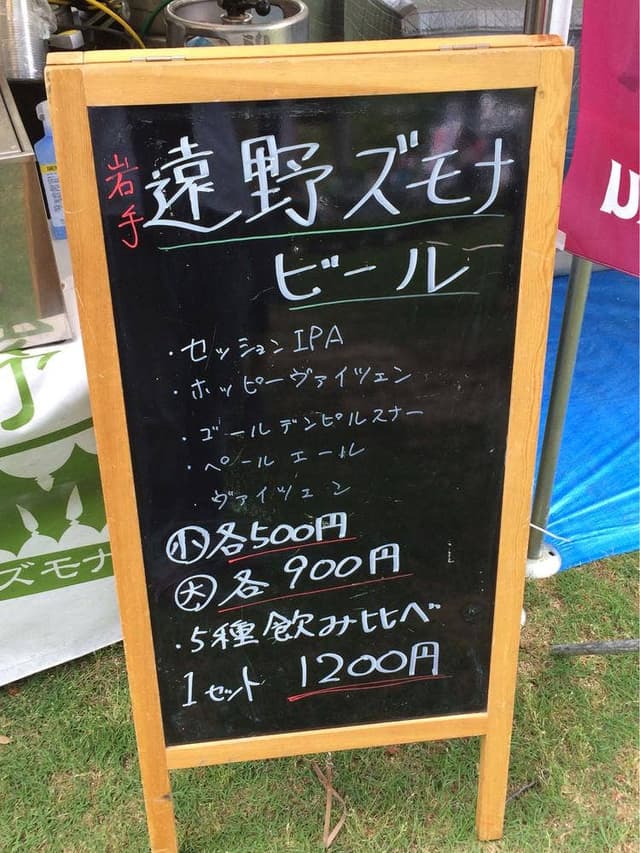 岩手 遠野ズモナ
ビール
・セッションIPA
・ホッピーヴァイツェン
・ゴールデンピルスナー
・ペールエール
ヴァイツェン
小 各500円
大 各900円
・5種飲み比べ
1セット 1200円
ズモナ